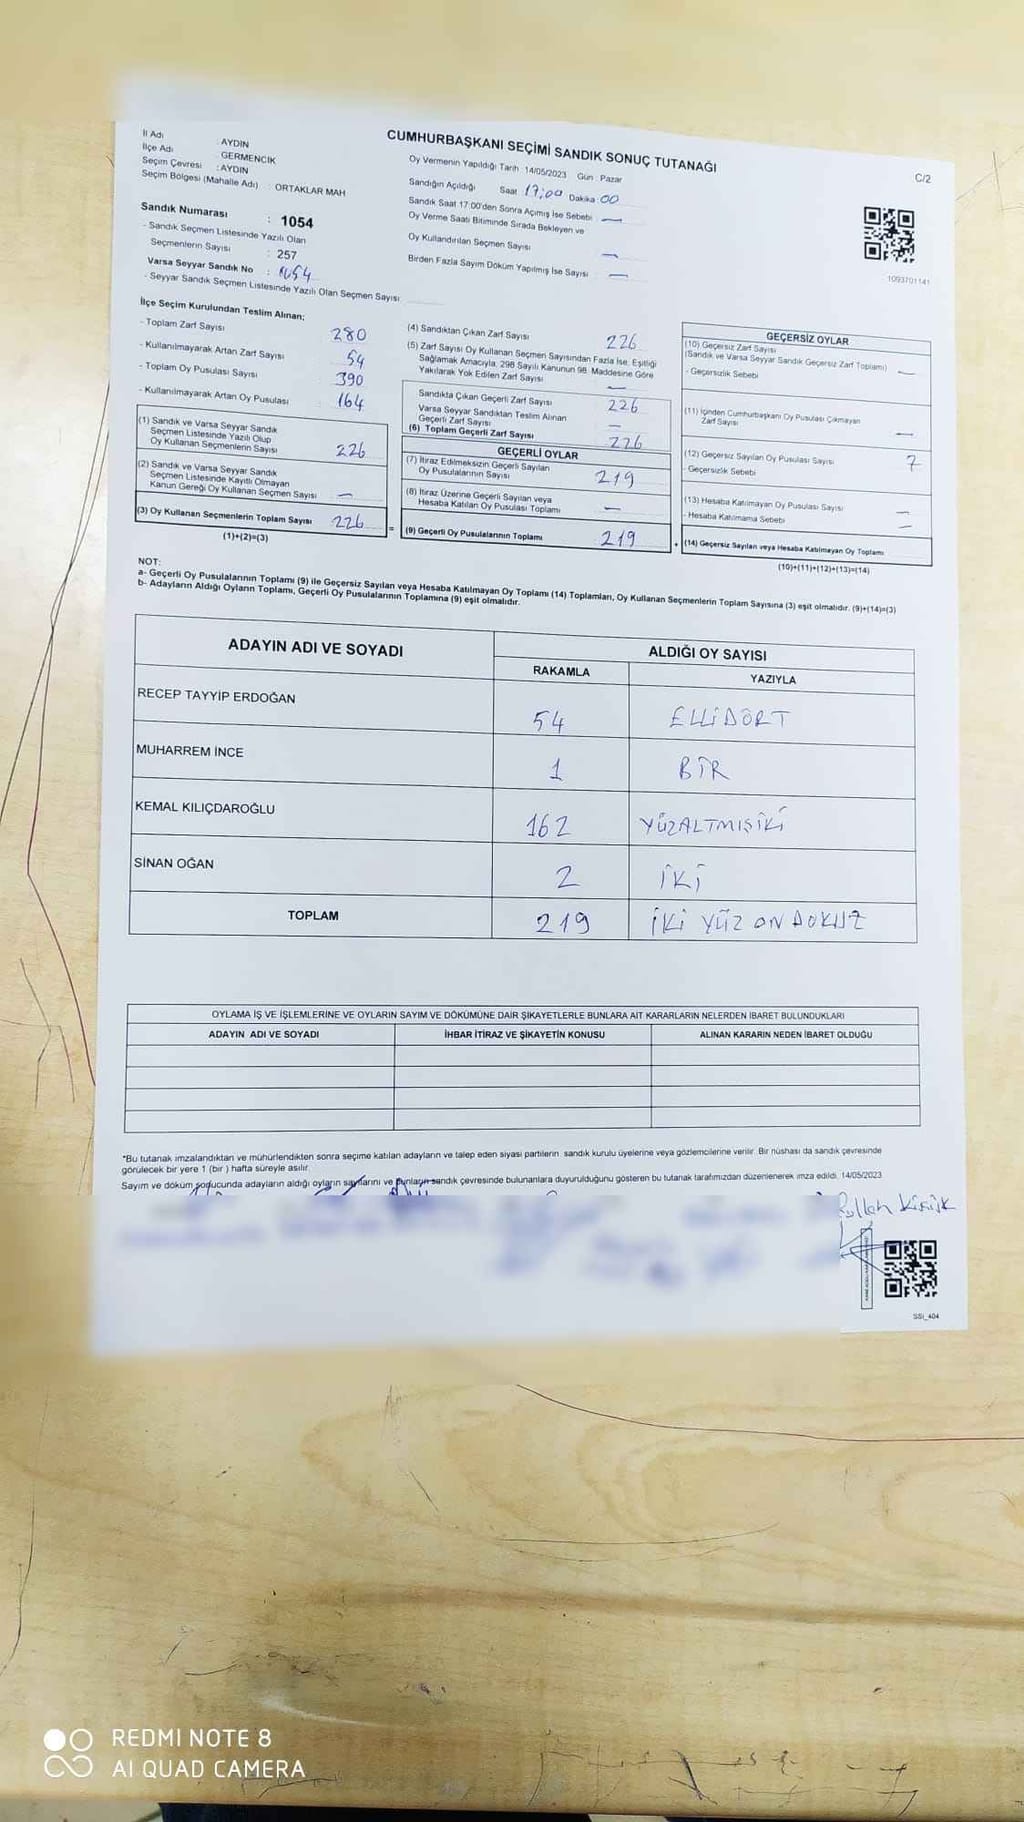 İl Adı : AYDIN
İlçe Adı : GERMENCİK
Seçim Çevresi : AYDIN
Seçim Bölgesi (Mahalle Adı) : ORTAKLAR MAH
Sandık Numarası : 1054
- Sandık Seçmen Listesinde Yazılı Olan
Seçmenlerin Sayısı : 257
Varsa Seyyar Sandık No : 1054
- Seyyar Sandık Seçmen Listesinde Yazılı Olan Seçmen Sayısı:
CUMHURBAŞKANI SEÇİMİ SANDIK SONUÇ TUTANAĞI
Oy Vermenin Yapıldığı Tarih 14/05/2023 Gün : Pazar
Sandığın Açıldığı Saat 17:00 Dakika: 00
Sandık Saat 17:00'den Sonra Açımış İse Sebebi : —
Oy Verme Saati Bitiminde Sırada Bekleyen ve
Oy Kullandırılan Seçmen Sayısı —
Birden Fazla Sayım Döküm Yapılmış İse Sayısı : —
C/2
1093701141
İlçe Seçim Kurulundan Teslim Alınan;
- Toplam Zarf Sayısı 280
- Kullanılmayarak Artan Zarf Sayısı 54
- Toplam Oy Pusulası Sayısı 390
- Kullanılmayarak Artan Oy Pusulası 164
(1) Sandık ve Varsa Seyyar Sandık
Seçmen Listesinde Yazılı Olup
Oy Kullanan Seçmenlerin Sayısı 226
(2) Sandık ve Varsa Seyyar Sandık
Seçmen Listesinde Kayıtlı Olmayan
Kanun Gereği Oy Kullanan Seçmen Sayısı —
(3) Oy Kullanan Seçmenlerin Toplam Sayısı 226 =
(1)+(2)=(3)
(4) Sandıktan Çıkan Zarf Sayısı 226
(5) Zarf Sayısı Oy Kullanan Seçmen Sayısından Fazla İse, Eşitliği
Sağlamak Amacıyla, 298 Sayılı Kanunun 98. Maddesine Göre
Yakılarak Yok Edilen Zarf Sayısı —
Sandıkta Çıkan Geçerli Zarf Sayısı 226
Varsa Seyyar Sandıktan Teslim Alınan
Geçerli Zarf Sayısı —
(6) Toplam Geçerli Zarf Sayısı 226
GEÇERLİ OYLAR
(7) İtiraz Edilmeksizin Geçerli Sayılan
Oy Pusulalarının Sayısı 219
(8) İtiraz Üzerine Geçerli Sayılan veya
Hesaba Katılan Oy Pusulası Toplamı —
(9) Geçerli Oy Pusulalarının Toplamı 219 +
GEÇERSİZ OYLAR
(10) Geçersiz Zarf Sayısı
(Sandık ve Varsa Seyyar Sandık Geçersiz Zarf Toplamı) —
- Geçersizlik Sebebi
(11) İçinden Cumhurbaşkanı Oy Pusulası Çıkmayan
Zarf Sayısı —
(12) Geçersiz Sayılan Oy Pusulası Sayısı 7
- Geçersizlik Sebebi
(13) Hesaba Katılmayan Oy Pusulası Sayısı —
- Hesaba Katılmama Sebebi —
(14) Geçersiz Sayılan veya Hesaba Katılmayan Oy Toplamı
(10)+(11)+(12)+(13)=(14)
NOT:
a- Geçerli Oy Pusulalarının Toplamı (9) ile Geçersiz Sayılan veya Hesaba Katılmayan Oy Toplamı (14) Toplamları, Oy Kullanan Seçmenlerin Toplam Sayısına (3) eşit olmalıdır. (9)+(14)=(3)
b- Adayların Aldığı Oyların Toplamı, Geçerli Oy Pusulalarının Toplamına (9) eşit olmalıdır.
ADAYIN ADI VE SOYADI ALDIĞI OY SAYISI
RAKAMLA YAZIYLA
RECEP TAYYİP ERDOĞAN 54 ELLİDÖRT
MUHARREM İNCE 1 BİR
KEMAL KILIÇDAROĞLU 162 YÜZALTMIŞİKİ
SİNAN OĞAN 2 İKİ
TOPLAM 219 İKİ YÜZ ON DOKUZ
OYLAMA İŞ VE İŞLEMLERİNE VE OYLARIN SAYIM VE DÖKÜMÜNE DAİR ŞİKAYETLERLE BUNLARA AİT KARARLARIN NELERDEN İBARET BULUNDUKLARI
ADAYIN ADI VE SOYADI İHBAR İTİRAZ VE ŞİKAYETİN KONUSU ALINAN KARARIN NEDEN İBARET OLDUĞU
*Bu tutanak imzalandıktan ve mühürlendikten sonra seçime katılan adayların ve talep eden siyasi partilerin sandık kurulu üyelerine veya gözlemcilerine verilir. Bir nüshası da sandık çevresinde
görülecek bir yere 1 (bir) hafta süreyle asılır.
Sayım ve döküm sonucunda adayların aldığı oyların sayılarını ve bunların sandık çevresinde bulunanlara duyurulduğunu gösteren bu tutanak tarafımızdan düzenlenerek imza edildi. 14/05/2023
SSI_404
REDMI NOTE 8
AI QUAD CAMERA